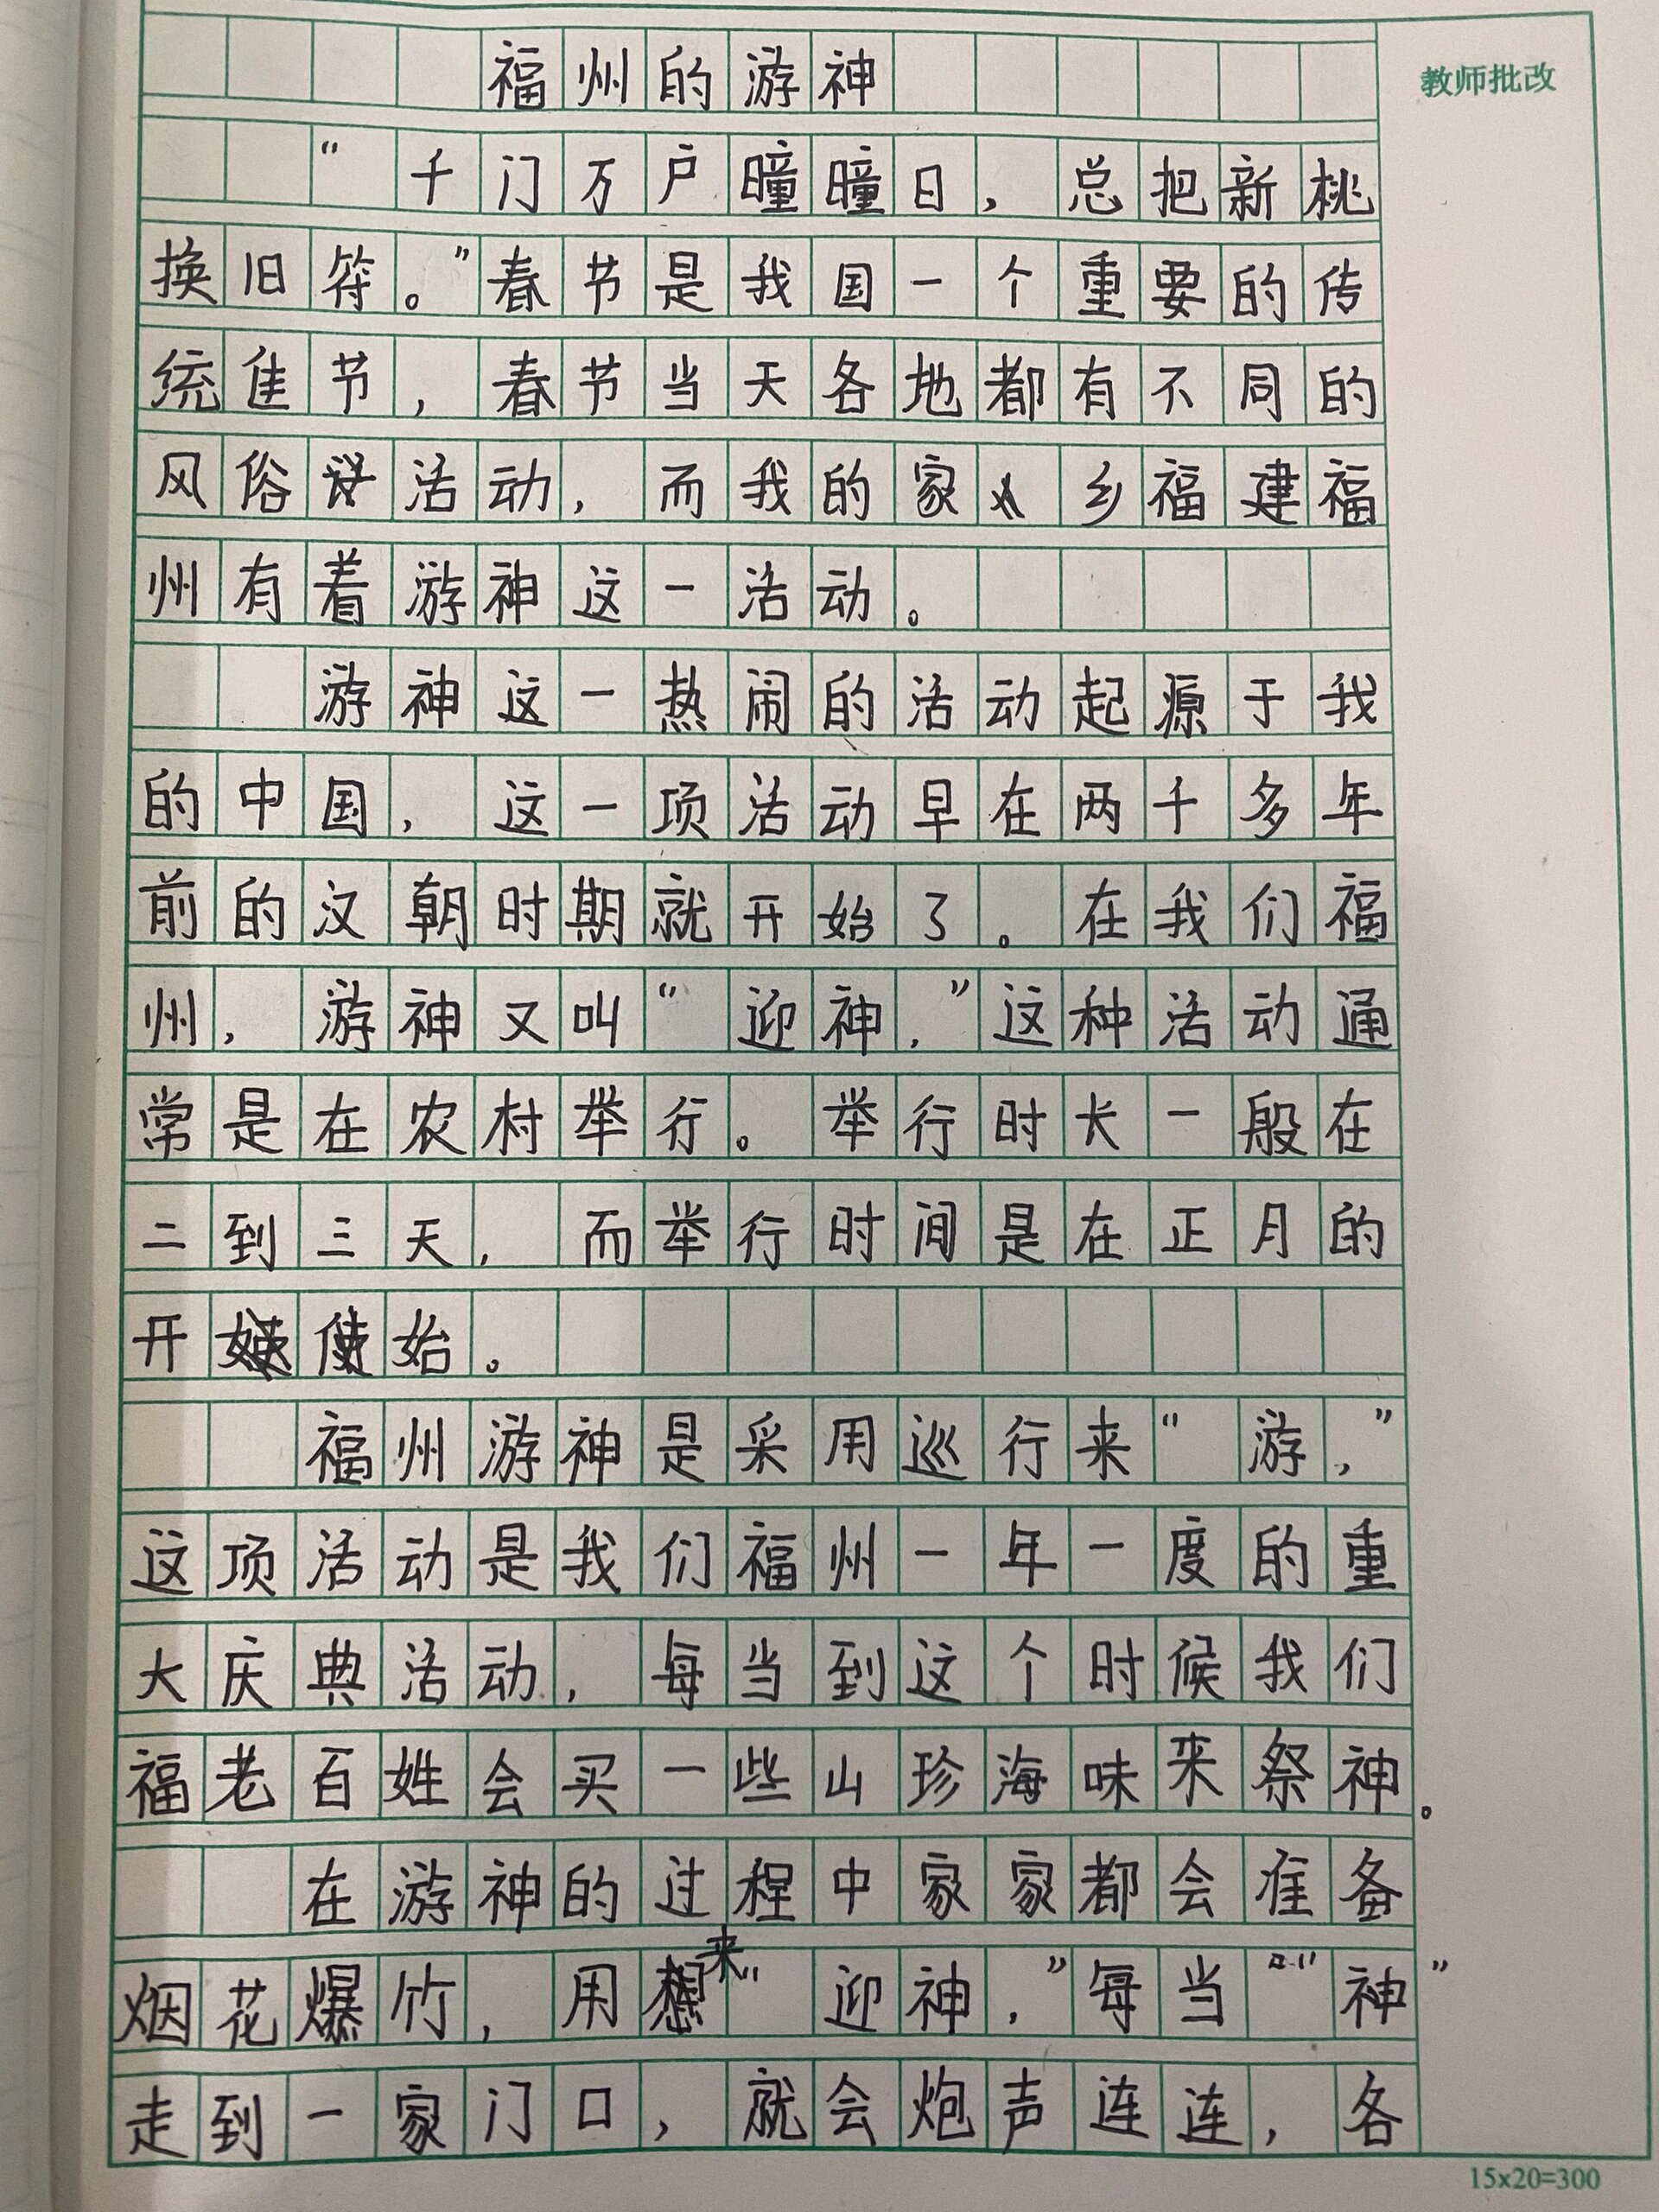 福州的游神
教师批改
“千门万户曈曈日，总把新桃
换旧符。”春节是我国一个重要的传
统佳节，春节当天各地都有不同的
风俗活动，而我的家乡福建福
州有着游神这一活动。
游神这一热闹的活动起源于我
的中国，这一项活动早在两千多年
前的汉朝时期就开始了。在我们福
州，游神又叫“迎神，”这种活动通
常是在农村举行。举行时长一般在
二到三天，而举行时间是在正月的
开始。
福州游神是采用巡行来“游，”
这项活动是我们福州一年一度的重
大庆典活动，每当到这个时候我们
福老百姓会买一些山珍海味来祭神。
在游神的过程中家家都会准备
烟花爆竹，用来“迎神，”每当“神”
走到一家门口，就会炮声连连，各
15x20=300